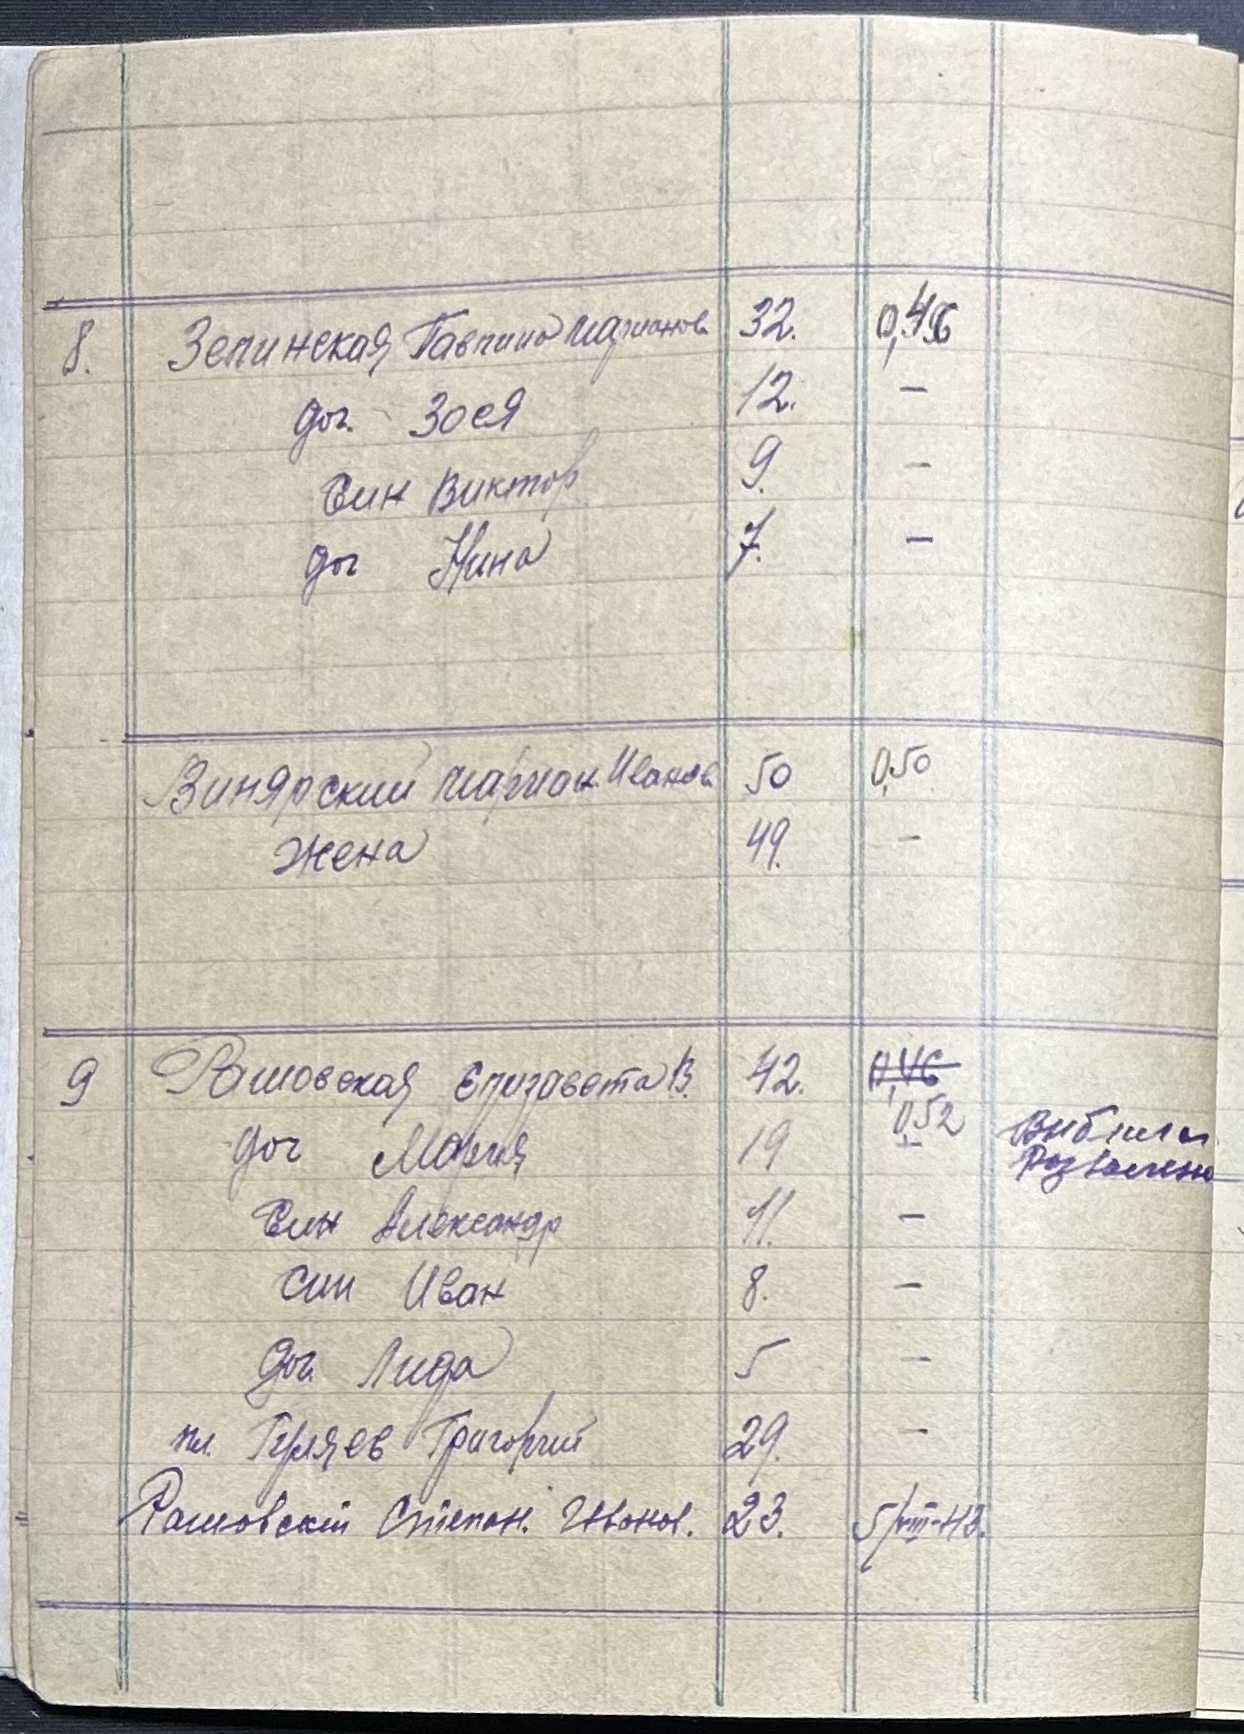 8. Зелинская Гавлина Марианов. 32. 0,46
доч. Зося 12. —
син Виктор 9. —
доч Нина 7. —
Винярский Мариан. Иванов. 50 0,50
жена 49. —
9 Рашовская Елизавета В. 42. 0,46
0,52
доч Мария 19 — Вибили
син Александр 11. —
син Иван 8. —
доч. Лида 5 —
пл. Гуляев Григорий 29. —
Рашовскій Степан. Иванов. 23. 5/VIII-43.